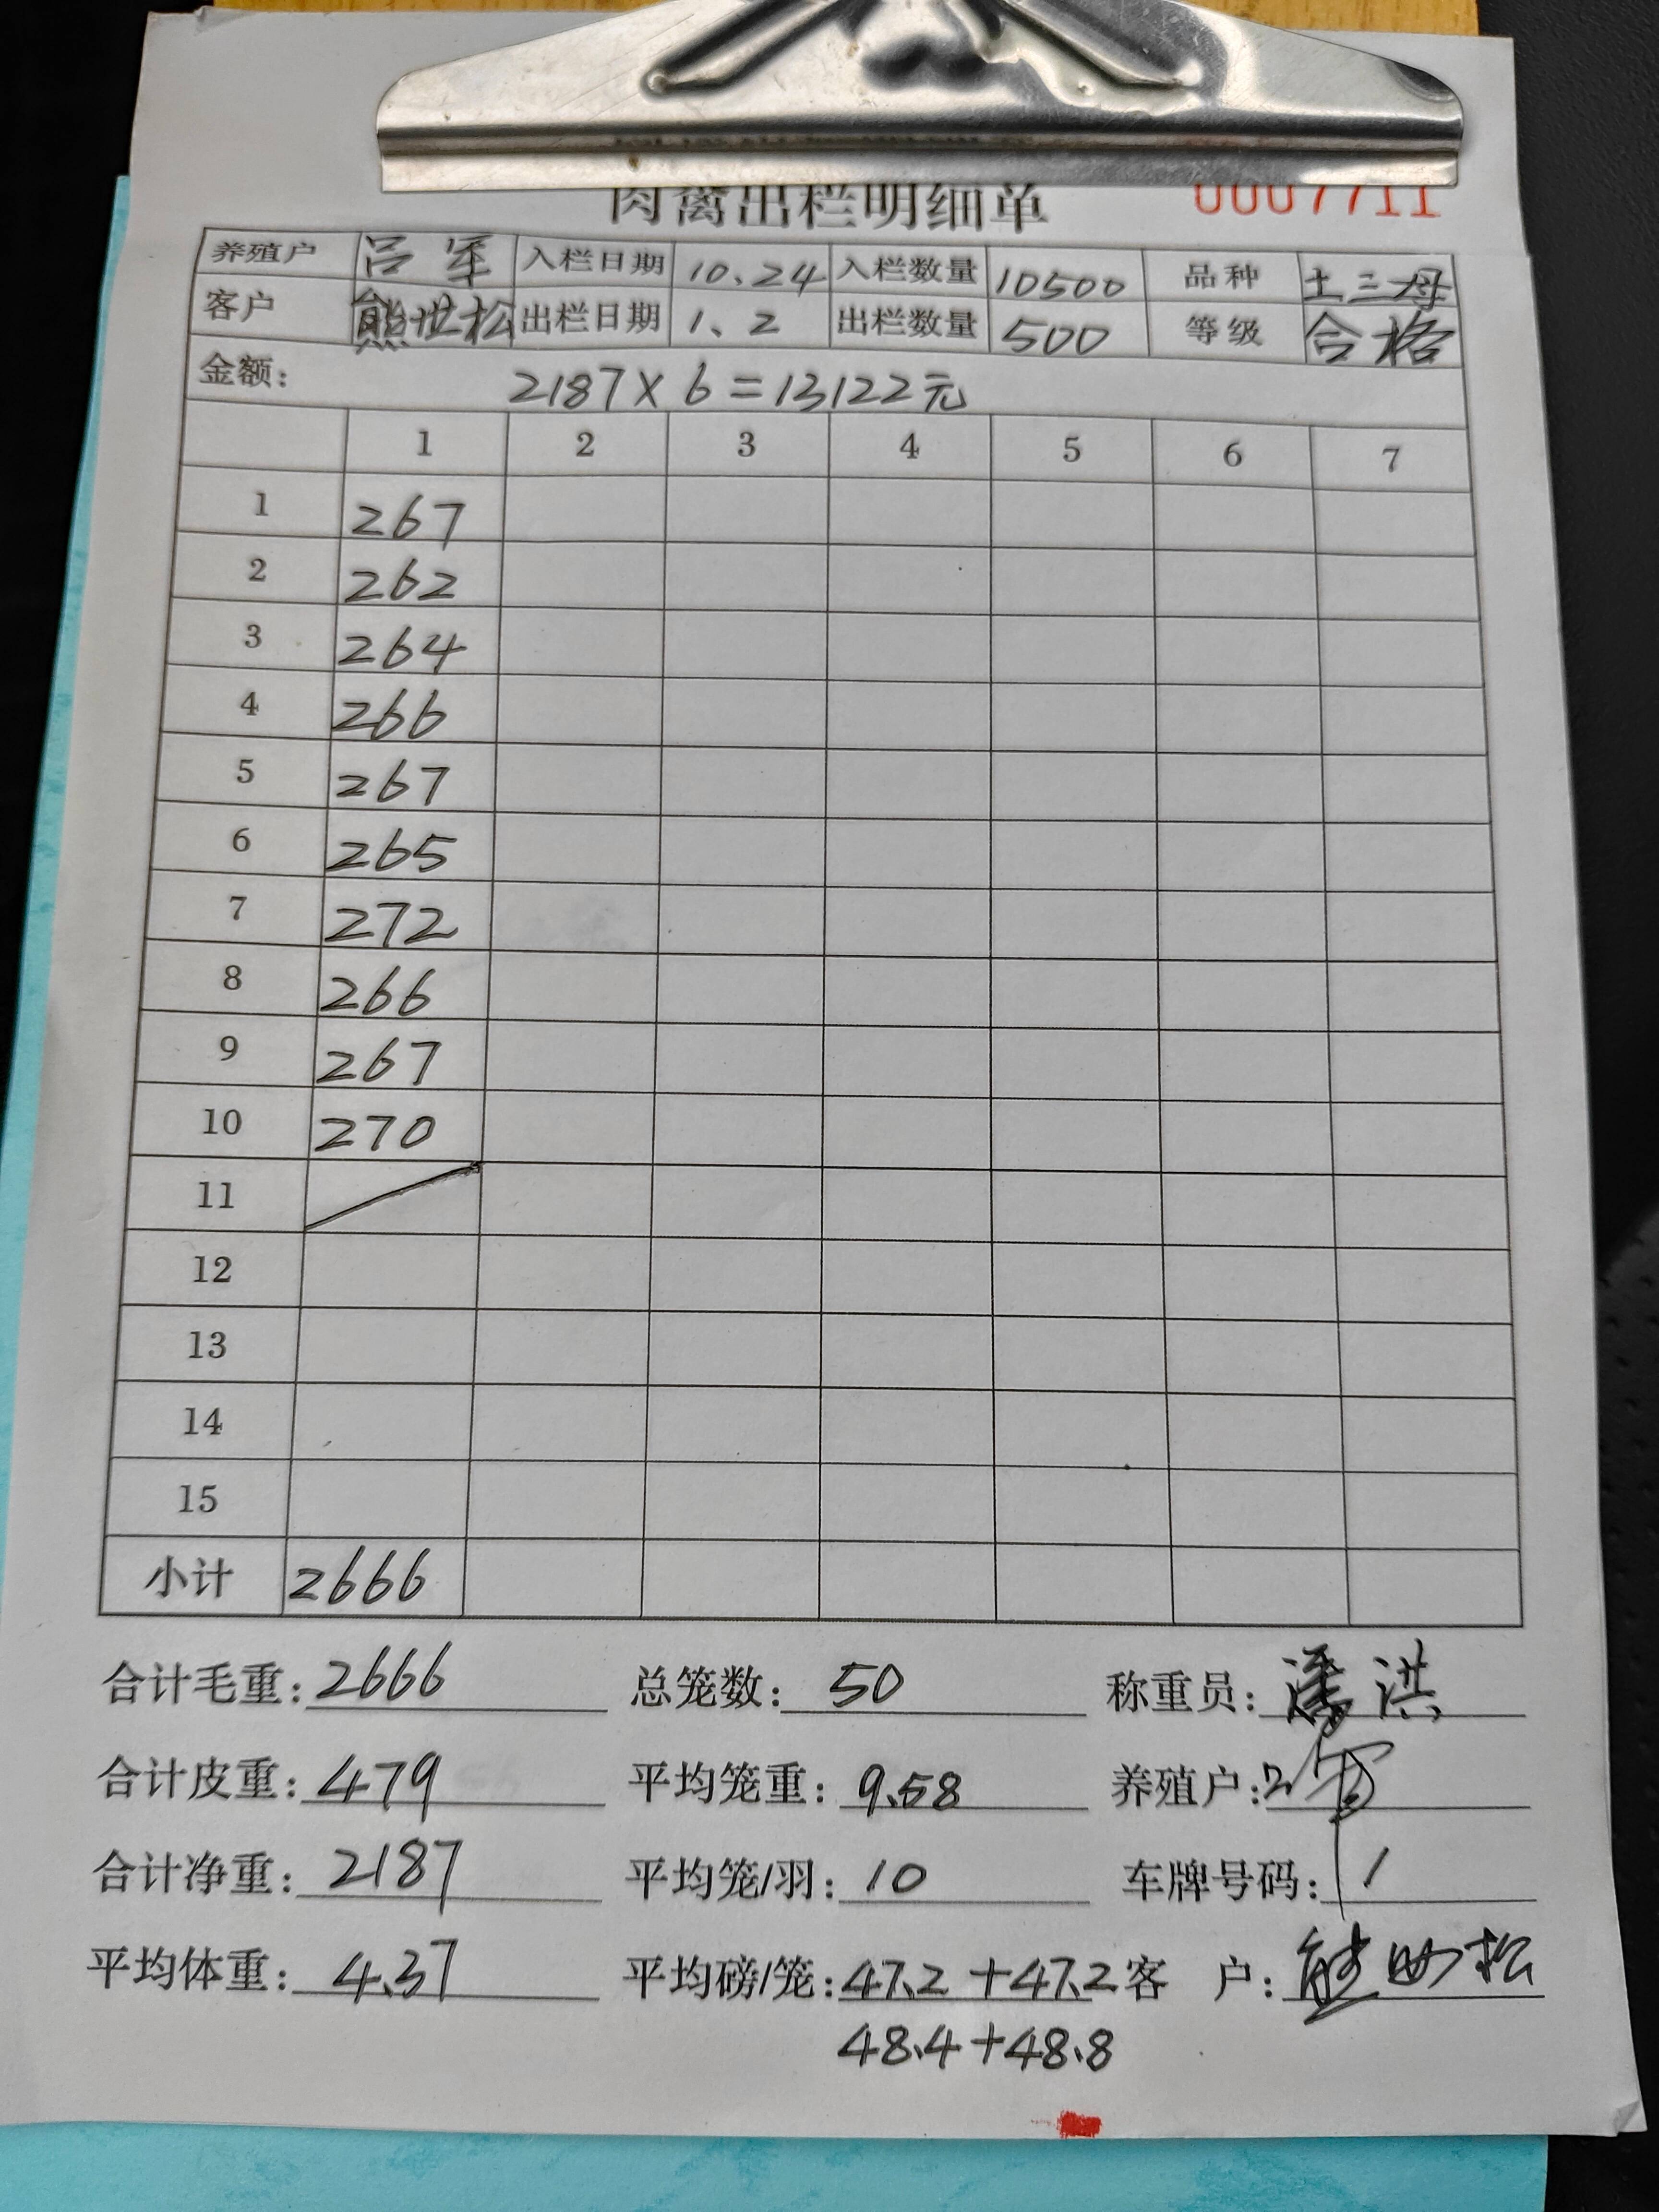 肉禽出栏明细单 0007711
养殖户 吕军 入栏日期 10、24 入栏数量 10500 品种 土三母
客户 熊世松 出栏日期 1、2 出栏数量 500 等级 合格
金额: 2187×6=13122元
1 2 3 4 5 6 7
1 267
2 262
3 264
4 266
5 267
6 265
7 272
8 266
9 267
10 270
11
12
13
14
15
小计 2666
合计毛重: 2666 总笼数: 50 称重员: 潘洪
合计皮重: 479 平均笼重: 9.58 养殖户:
合计净重: 2187 平均笼/羽: 10 车牌号码:
平均体重: 4.37 平均磅/笼: 47.2+47.2 客 户: 熊世松
48.4+48.8